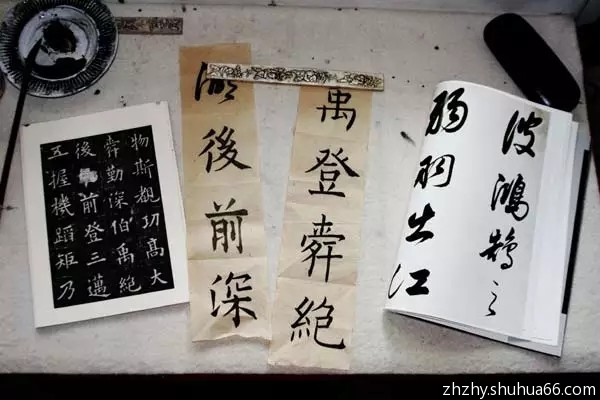 物斯觀功高大
舜勤深伯禹絕
後前登三邁
五握機蹈矩乃
禹登舜絕
後前深
波鴻鵠之
弱羽出江
zhzhy.shuhua66.com